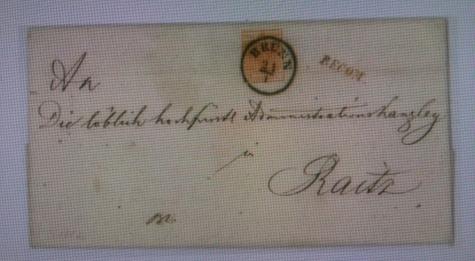 BRÜNN
21
1
RECOM
An
Die löblich hochfürstl Administrationskanzley
in
Raitz